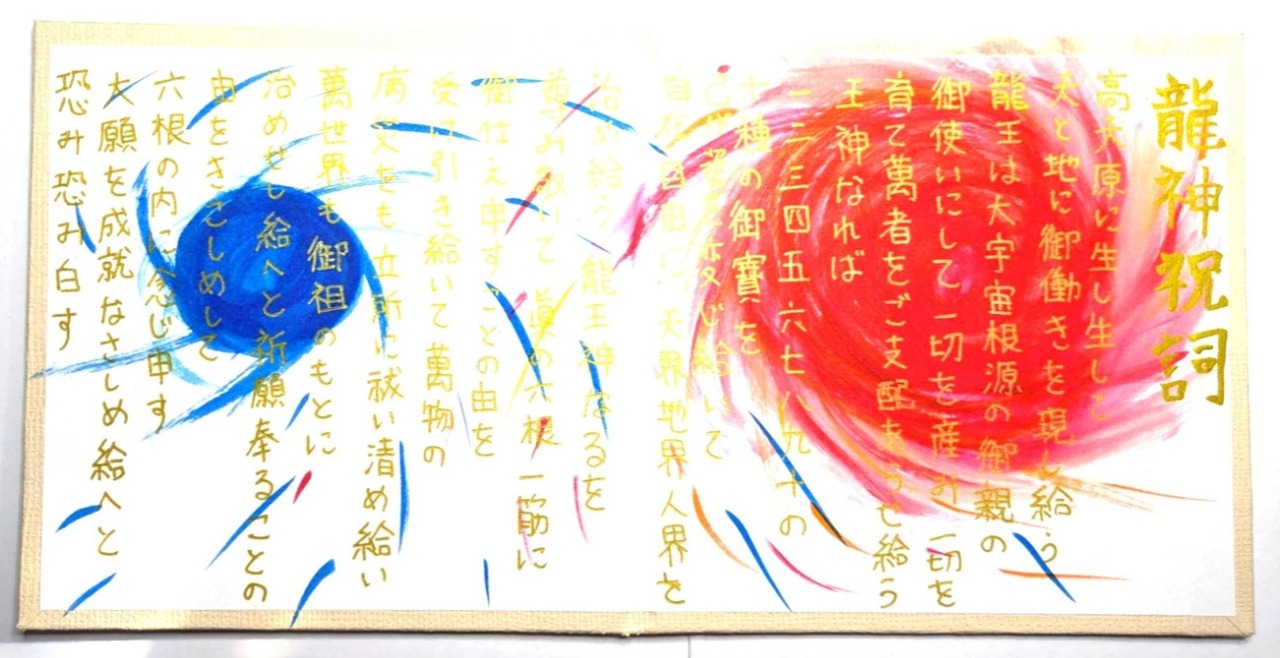 龍神祝詞
高天原に生し生して
天と地に御働きを現し給う
龍王は大宇宙根源の御親の
御使いにして一切を産み一切を
育て萬者をご支配あらせ給う
王神なれば
一二三四五六七八九十の
十種の御寶を
己が姿と変じ給いて
自在自由に天界地界人界を
治め給う龍王神なるを
尊み敬いて眞の六根一筋に
御仕え申すことの由を
受け引き給いて萬物の
病災をも立所に祓い清め給い
萬世界も御祖のもとに
治めせしめ給へと祈願奉ることの
由をきこしめして
六根の内に念じ申す
大願を成就なさしめ給へと
恐み恐み白す